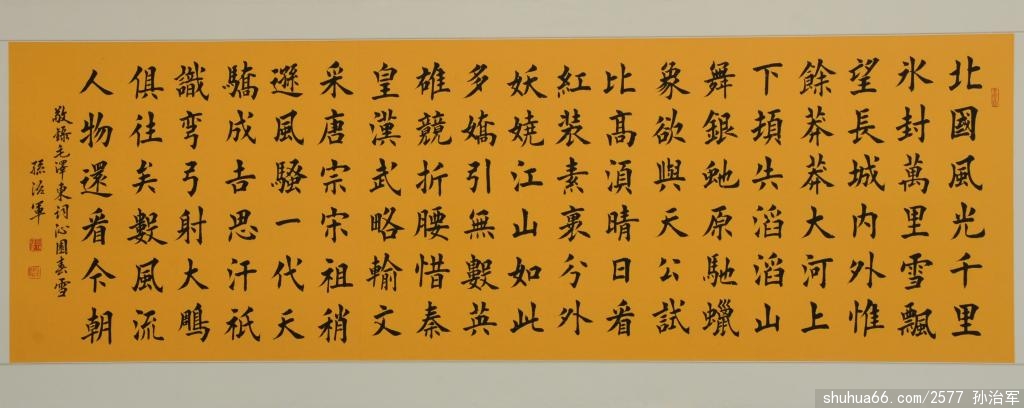 北國風光千里
氷封萬里雪飄
望長城内外惟
餘莽莽大河上
下頓失滔滔山
舞銀虵原馳蠟
象欲與天公試
比高須晴日看
紅装素裹分外
妖嬈江山如此
多嬌引無數英
雄競折腰惜秦
皇漢武略輸文
采唐宗宋祖稍
遜風騷一代天
驕成吉思汗祇
識弯弓射大鵰
俱往矣數風流
人物還看今朝
敬録毛澤東詞沁園春雪
孫治軍
shuhua66.com/2577 孙治军